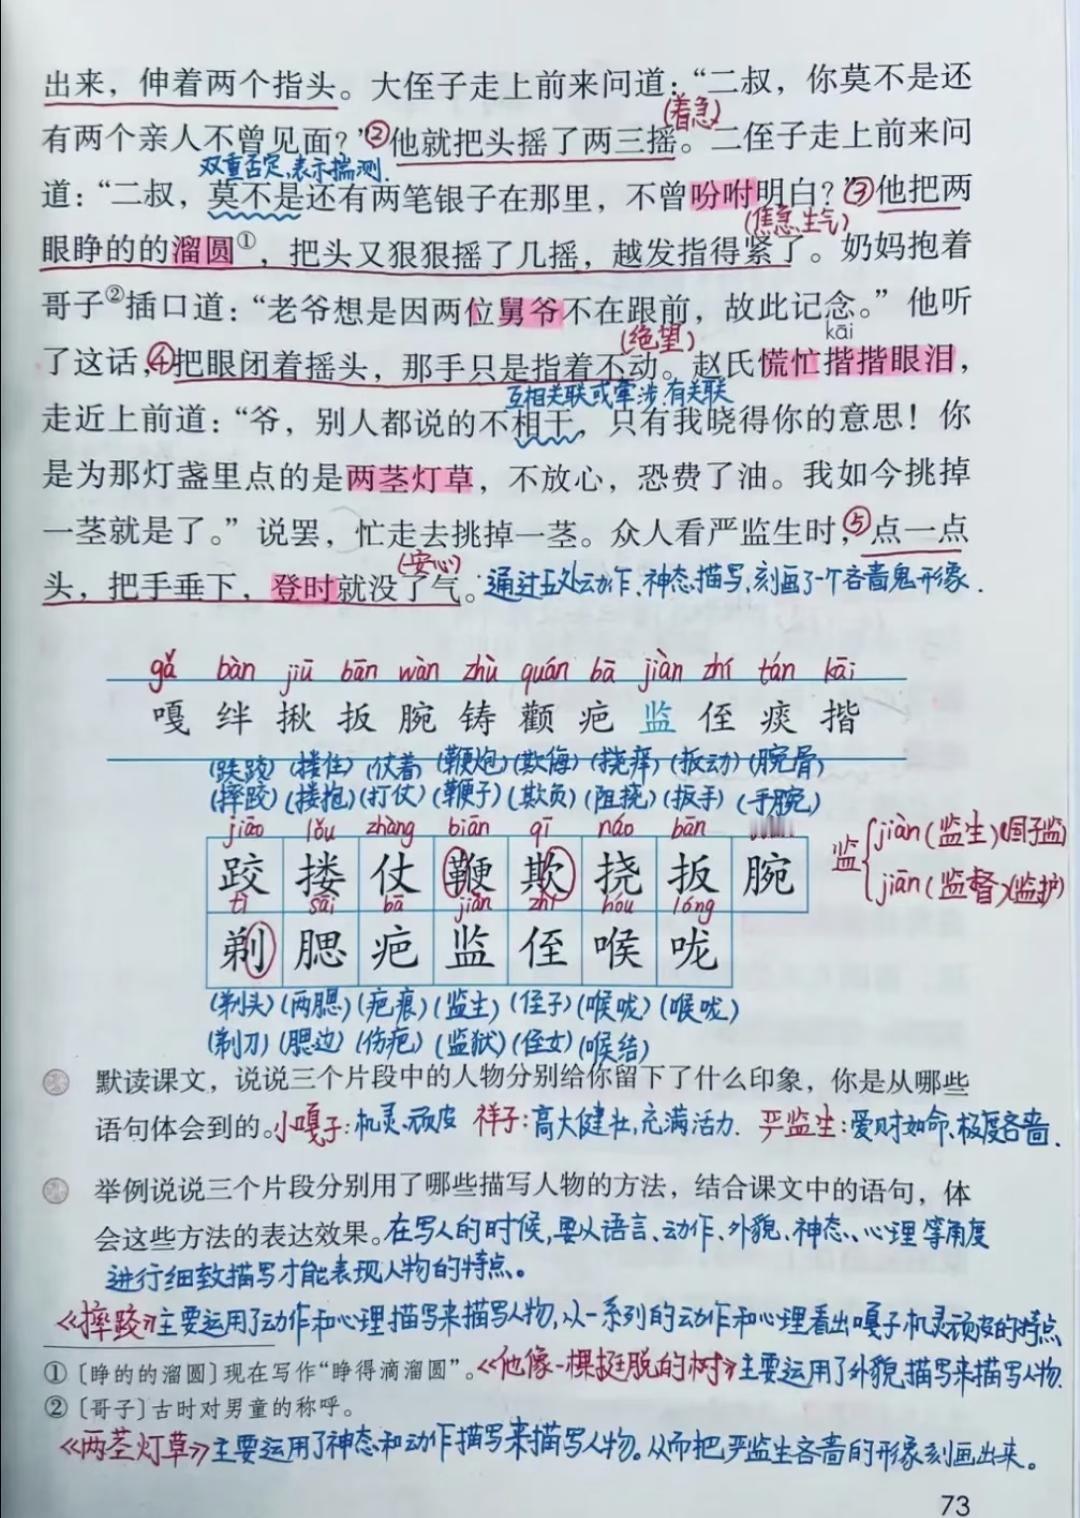 出来，伸着两个指头。大侄子走上前来问道：“二叔，你莫不是还
(着急)
有两个亲人不曾见面？”②他就把头摇了两三摇。二侄子走上前来问
双重否定,表示揣测.
道：“二叔，莫不是还有两笔银子在那里，不曾吩咐明白？”③他把两
(焦急、生气)
眼睁的的溜圆①，把头又狠狠摇了几摇，越发指得紧了。奶妈抱着
哥子②插口道：“老爷想是因两位舅爷不在跟前，故此记念。”他听
(绝望) kāi
了这话，④把眼闭着摇头，那手只是指着不动。赵氏慌忙揩揩眼泪，
互相关联或牵涉,有关联
走近上前道：“爷，别人都说的不相干，只有我晓得你的意思！你
是为那灯盏里点的是两茎灯草，不放心，恐费了油。我如今挑掉
一茎就是了。”说罢，忙走去挑掉一茎。众人看严监生时，⑤点一点
(安心)
头，把手垂下，登时就没了气。通过五处动作、神态描写,刻画了一个吝啬鬼形象.
gǎ bàn jiū bān wàn zhù quán bā jiàn zhí tán kāi
嘎 绊 揪 扳 腕 铸 颧 疤 监 侄 痰 揩
(跌跤) (搂住) (仗着) (鞭炮) (欺侮) (挠痒) (扳动) (腕骨)
(摔跤) (搂抱) (打仗) (鞭子) (欺负) (阻挠) (扳手) (手腕)
jiāo lǒu zhàng biān qī náo bān
跤 搂 仗 鞭 欺 挠 扳 腕
监 jiàn (监生)(国子监)
jiān (监督)(监护)
tì sāi bā jiān zhí hóu lóng
剃 腮 疤 监 侄 喉 咙
(剃头) (两腮) (疤痕) (监生) (侄子) (喉咙) (喉咙)
(剃刀) (腮边) (伤疤) (监狱) (侄女) (喉结)
默读课文，说说三个片段中的人物分别给你留下了什么印象，你是从哪些
语句体会到的。小嘎子:机灵、顽皮 祥子:高大健壮,充满活力. 严监生:爱财如命、极度吝啬.
举例说说三个片段分别用了哪些描写人物的方法，结合课文中的语句，体
会这些方法的表达效果。在写人的时候,要从语言、动作、外貌、神态、心理等角度
进行细致描写才能表现人物的特点。
《摔跤》主要运用了动作和心理描写来描写人物,从一系列的动作和心理看出嘎子机灵顽皮的特点
①〔睁的的溜圆〕现在写作“睁得滴溜圆”。《他像一棵挺脱的树》主要运用了外貌描写来描写人物.
②〔哥子〕古时对男童的称呼。
《两茎灯草》主要运用了神态和动作描写来描写人物。从而把严监生吝啬的形象刻画出来。
73